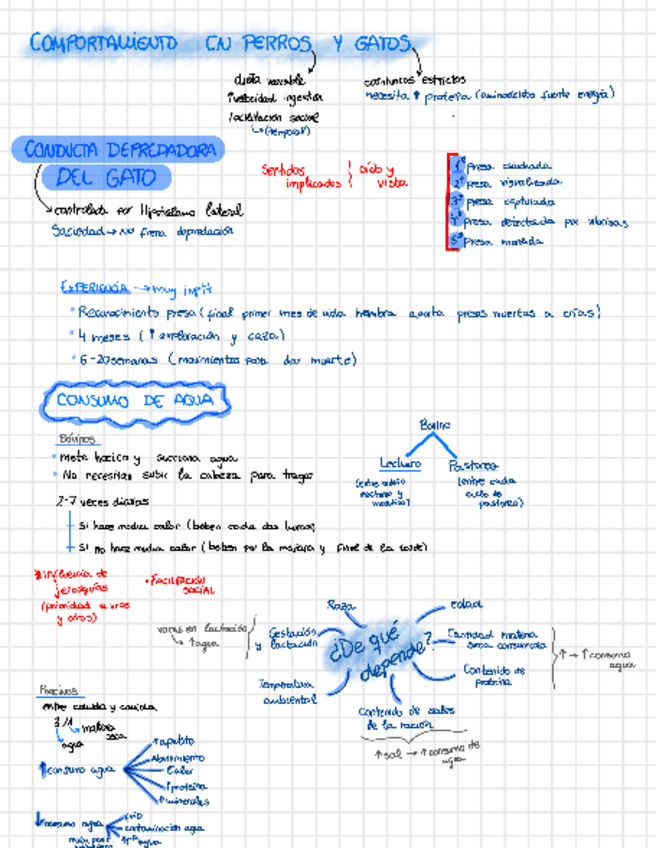 COMPORTAMIENTO EN PERROS Y GATOS
dieta variable
↑velocidad ingestión
facilitación social
↳(temporal)
carnívoros estrictos
necesita ↑ proteína (aminoácidos fuente energía)
CONDUCTA DEPREDADORA
DEL GATO
controlada por Hipotálamo lateral
Saciedad → NO frena depredación
Sentidos
implicados
oído y
vista
1º Presa escuchada
2º Presa visualizada
3º Presa capturada
4º Presa detectada por vibrisas
5º Presa matada
EXPERIENCIA → muy impt
• Reconocimiento presa (final primer mes de vida hembra aporta presas muertas a crías)
• 4 meses (↑ exploración y caza)
• 6-20 semanas (movimientos para dar muerte)
CONSUMO DE AGUA
Bovinos
• Mete hocico y succiona agua
• No necesitan subir la cabeza para tragar
2-7 veces diarias
Si hace mucho calor (beben cada dos horas)
Si no hace mucho calor (beben por la mañana y final de la tarde)
Bovino
Lechero
(entre ordeño
nocturno y
matutino)
Pastoreo
(entre cada
ciclo de
pastoreo)
* Influencia de
jerarquías
(prioridad unos
y otros)
• FACILITACIÓN
SOCIAL
¿De qué
depende?
Raza
edad
Gestación
y lactación
vacas en lactación
↳ ↑agua
Cantidad materia
seca consumida
Contenido de
proteína
↑ → ↑ consumo
agua
Temperatura
ambiental
Contenido de sales
de la ración
↑ sal → ↑ consumo de
agua
Porcinos
entre comida y comida
3/1
agua
materia
seca
↑ consumo agua
↑apetito
Aburrimiento
Calor
↑proteína
↑minerales
↓ consumo agua
Frío
contaminación agua
↑Tª agua